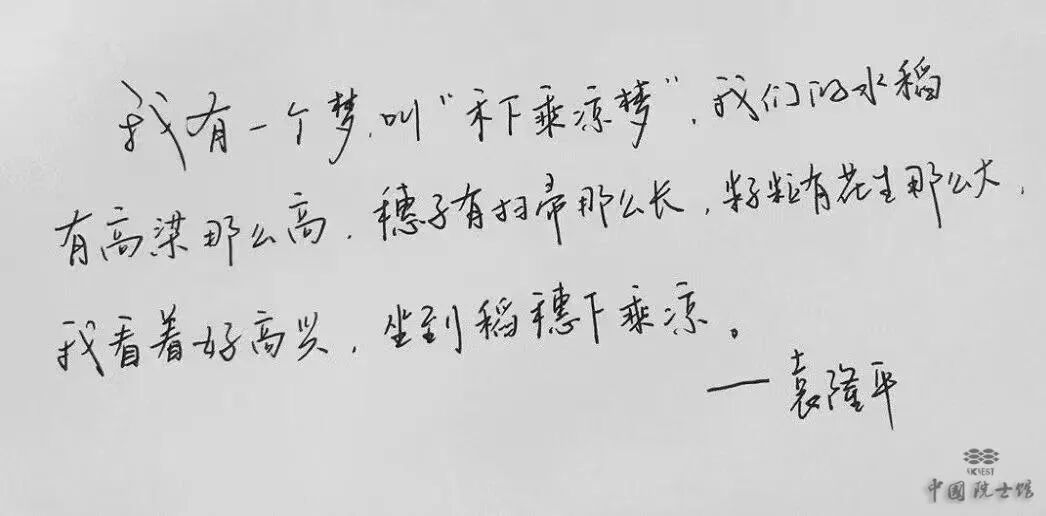 我有一个梦,叫“禾下乘凉梦”,我们的水稻
有高梁那么高,穗子有扫帚那么长,籽粒有花生那么大,
我看着好高兴,坐到稻穗下乘凉。
——袁隆平
IKCEST
中国院士馆